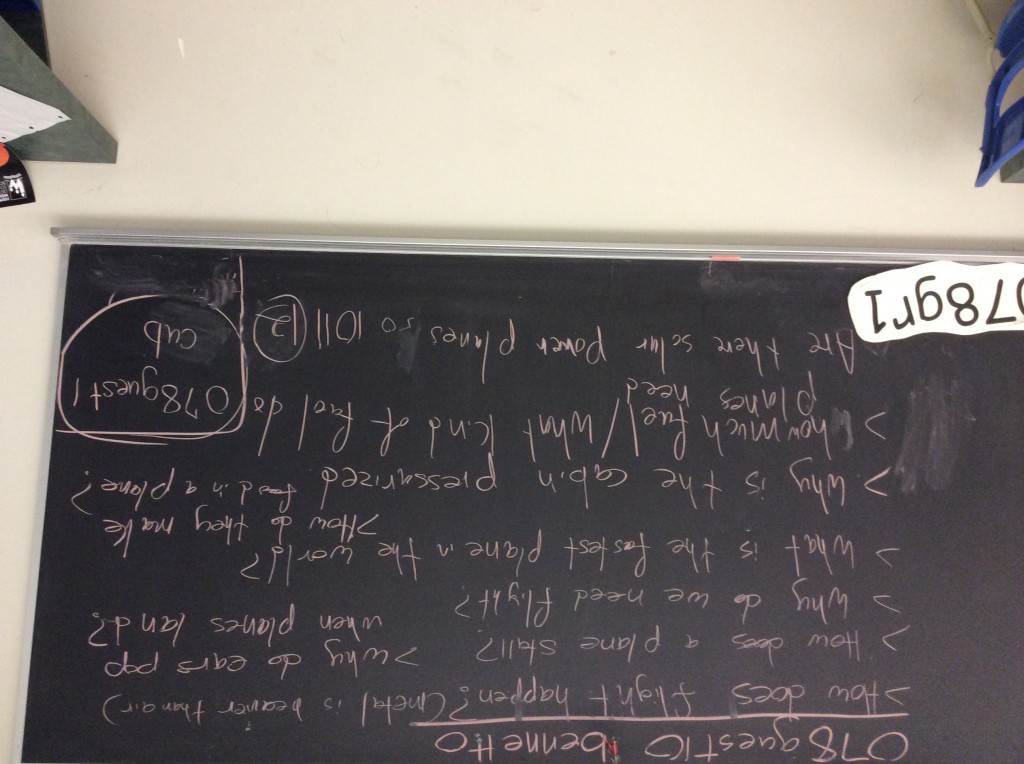 078questio bennetto
>How does flight happen? (metal is heavier than air)
> How does a plane stall?
>why do ears pop
when planes land?
> Why do we need flight?
> What is the fastest plane in the world?
>How do they make
food in a plane?
> Why is the cabin pressurized
> how much fuel/What kind of fuel do
planes need
Are there solar power planes so 1011 12
078quest1
cub
078gr1